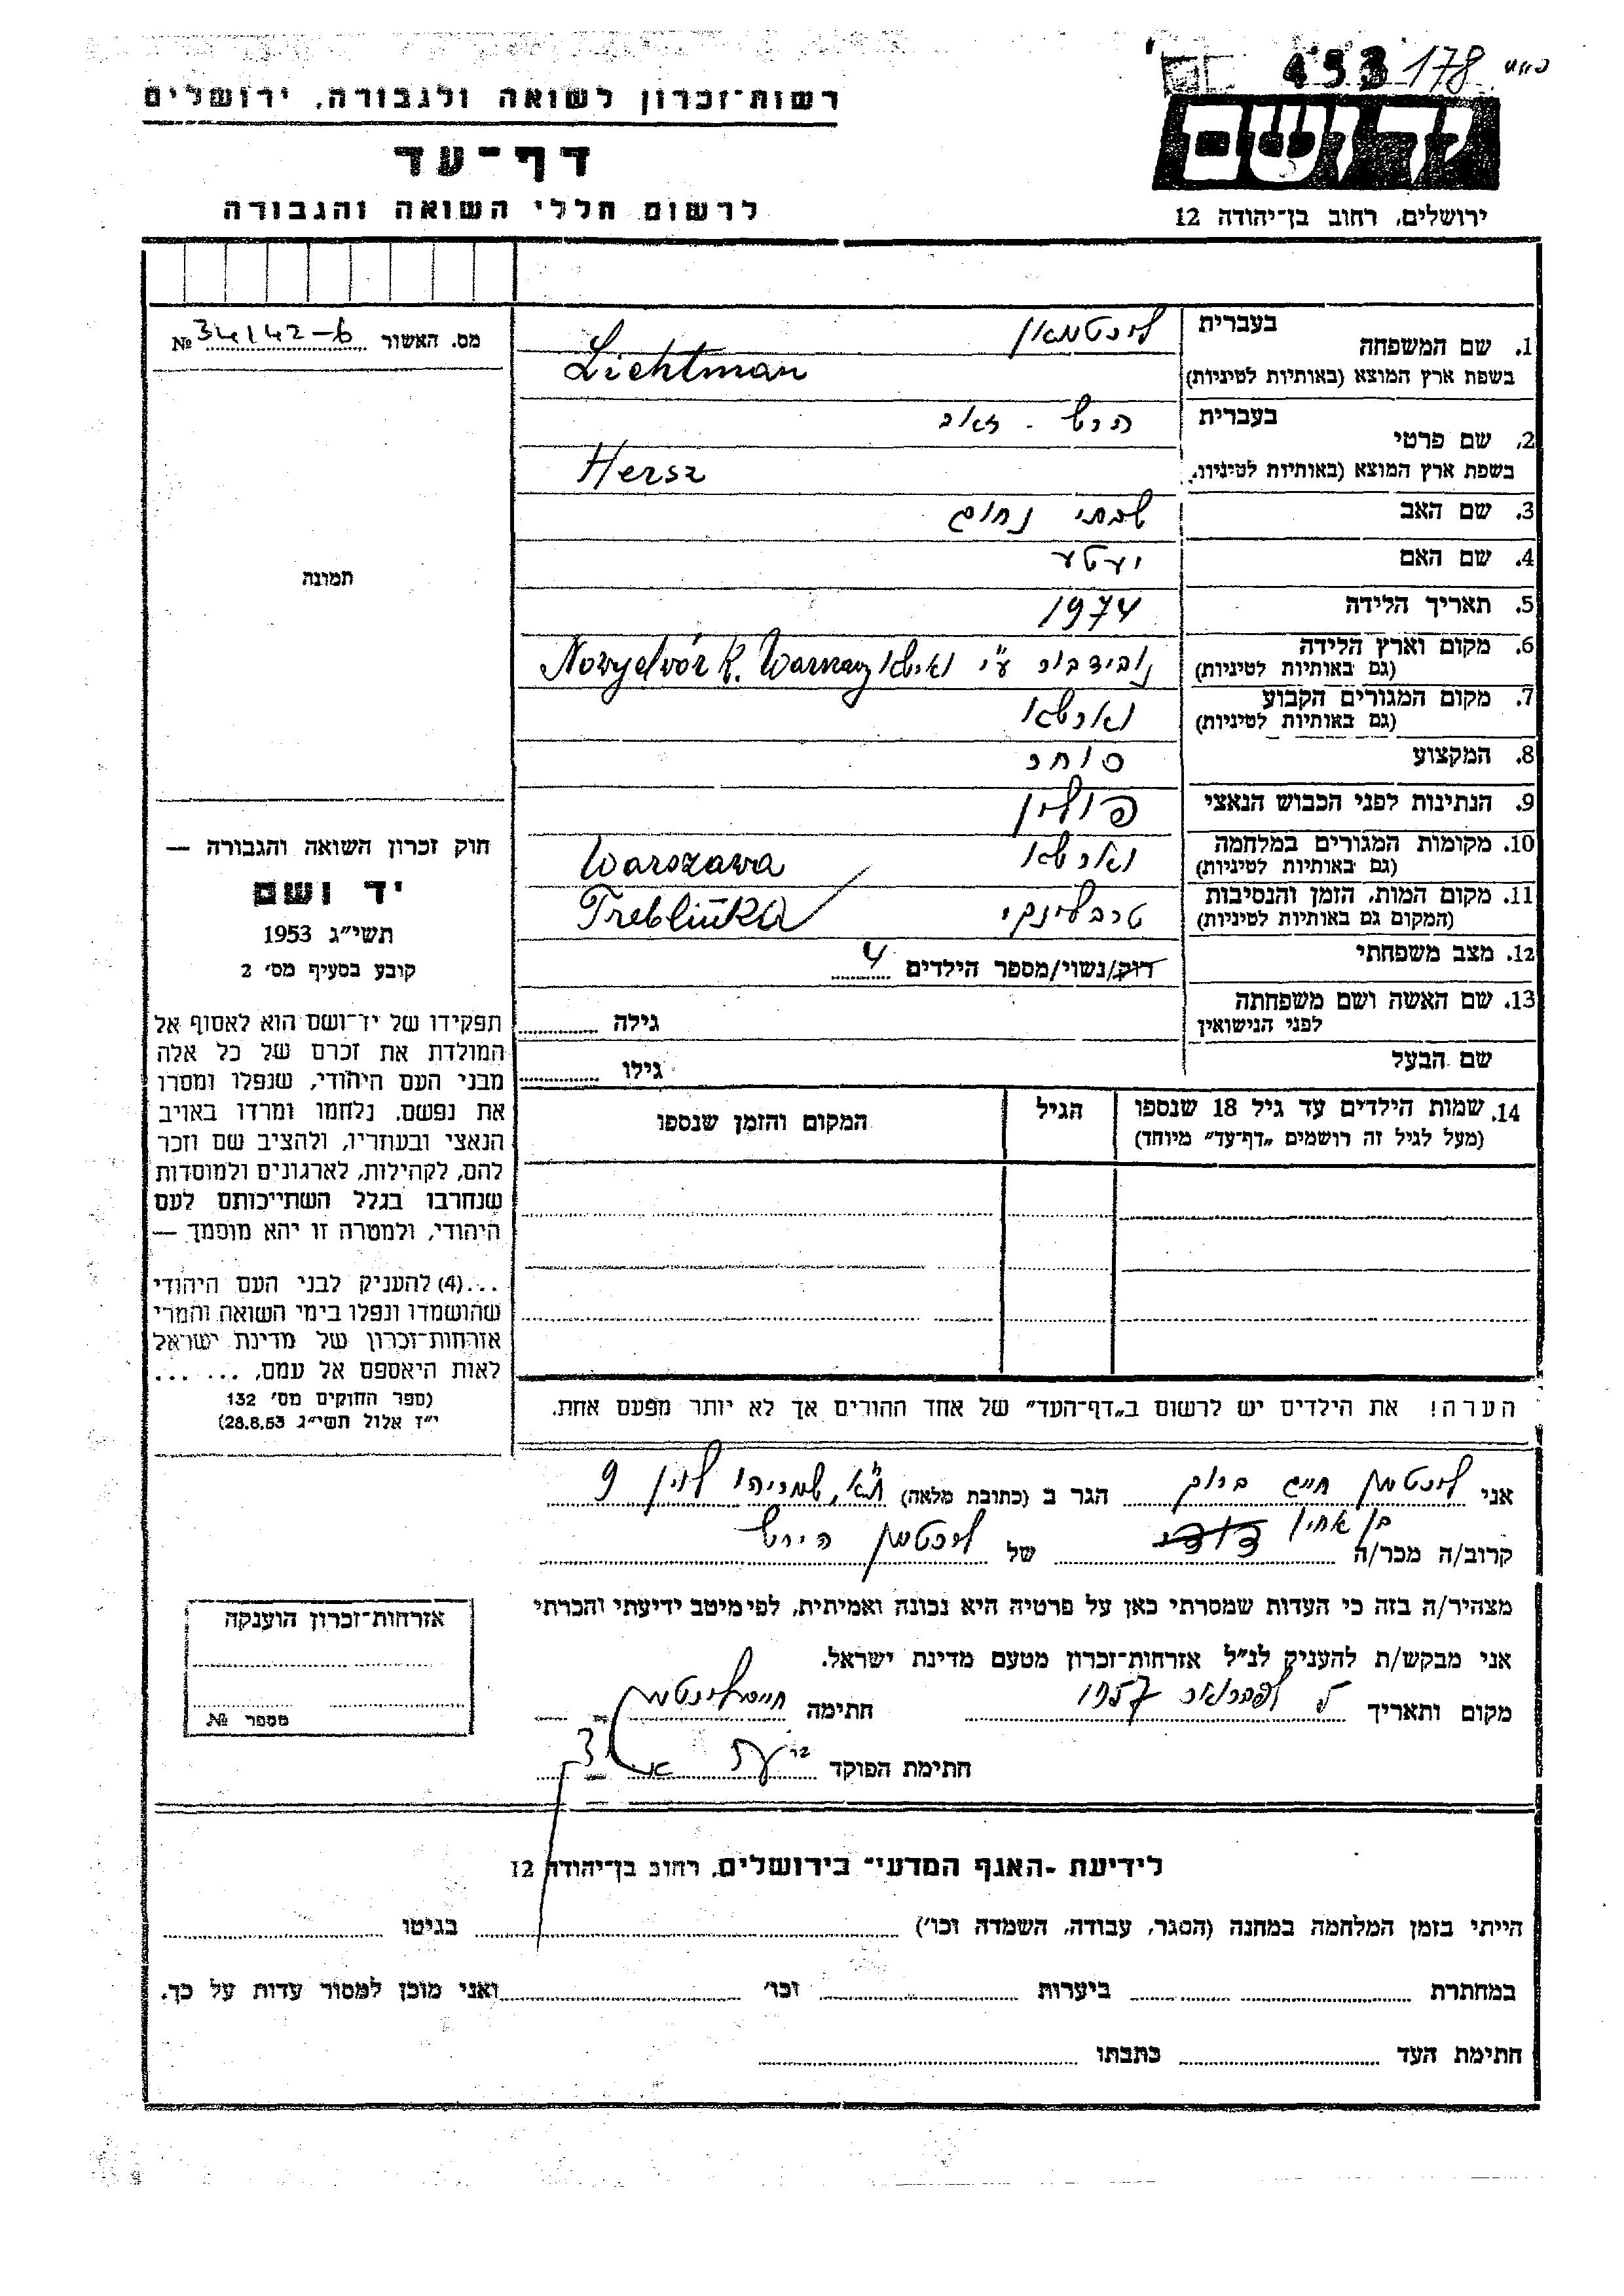 453 178
רשות־זכרון לשואה ולגבורה, ירושלים
דף־עד
לרשום חללי השואה והגבורה
ידושם
ירושלים, רחוב בן־יהודה 12
מס. האשור 34142-6 №
תמונה
1. שם המשפחה בעברית ליכטמאן
בשפת ארץ המוצא (באותיות לטיניות) Lichtman
2. שם פרטי בעברית הרש - זאב
בשפת ארץ המוצא (באותיות לטיניות) Hersz
3. שם האב שבתי נחום
4. שם האם יעטע
5. תאריך הלידה 1974
6. מקום וארץ הלידה
(גם באותיות לטיניות) נובידבור ע"י ווארשא Novydvór K. Warszawy
7. מקום המגורים הקבוע
(גם באותיות לטיניות) ווארשא
8. המקצוע סוחר
9. הנתינות לפני הכבוש הנאצי פולין
10. מקומות המגורים במלחמה
(גם באותיות לטיניות) ווארשא Warszawa
11. מקום המות, הזמן והנסיבות
(המקום גם באותיות לטיניות) טרבלינקי Treblinka
12. מצב משפחתי רוק/נשוי/מספר הילדים 4
13. שם האשה ושם משפחתה
לפני הנישואין גילה
שם הבעל גילו
14. שמות הילדים עד גיל 18 שנספו הגיל המקום והזמן שנספו
(מעל לגיל זה רושמים „דף־עד” מיוחד)
הערה! את הילדים יש לרשום ב„דף־העד” של אחד ההורים אך לא יותר מפעם אחת.
חוק זכרון השואה והגבורה —
יד ושם
תשי"ג 1953
קובע בסעיף מס' 2
תפקידו של יד־ושם הוא לאסוף אל
המולדת את זכרם של כל אלה
מבני העם היהודי, שנפלו ומסרו
את נפשם, נלחמו ומרדו באויב
הנאצי ובעוזריו, ולהציב שם וזכר
להם, לקהילות, לארגונים ולמוסדות
שנחרבו בגלל השתייכותם לעם
היהודי, ולמטרה זו יהא מוסמך —
...(4) להעניק לבני העם היהודי
שהושמדו ונפלו בימי השואה והמרי
אזרחות־זכרון של מדינת ישראל
לאות היאספם אל עמם, ... ...
(ספר החוקים מס' 132
י"ז אלול תשי"ג 28.8.53)
אני ליכטמן חיים ברוך הגר ב (כתובת מלאה) ת"א, שמריהו לוין 9
בן אחיו
קרוב/ה מכר/ה דודי של ליכטמן הירש
מצהיר/ה בזה כי העדות שמסרתי כאן על פרטיה היא נכונה ואמיתית, לפי מיטב ידיעתי והכרתי
אני מבקש/ת להעניק לנ"ל אזרחות־זכרון מטעם מדינת ישראל.
מקום ותאריך פברואר 1957 חתימה חיים ליכטמן
חתימת הפוקד
אזרחות־זכרון הוענקה
מספר №
לידיעת -האגף המדעי־ בירושלים, רחוב בן־יהודה 12
הייתי בזמן המלחמה במחנה (הסגר, עבודה, השמדה וכו') בגיטו
במחתרת ביערות וכו' ואני מוכן למסור עדות על כך.
חתימת העד כתבתו